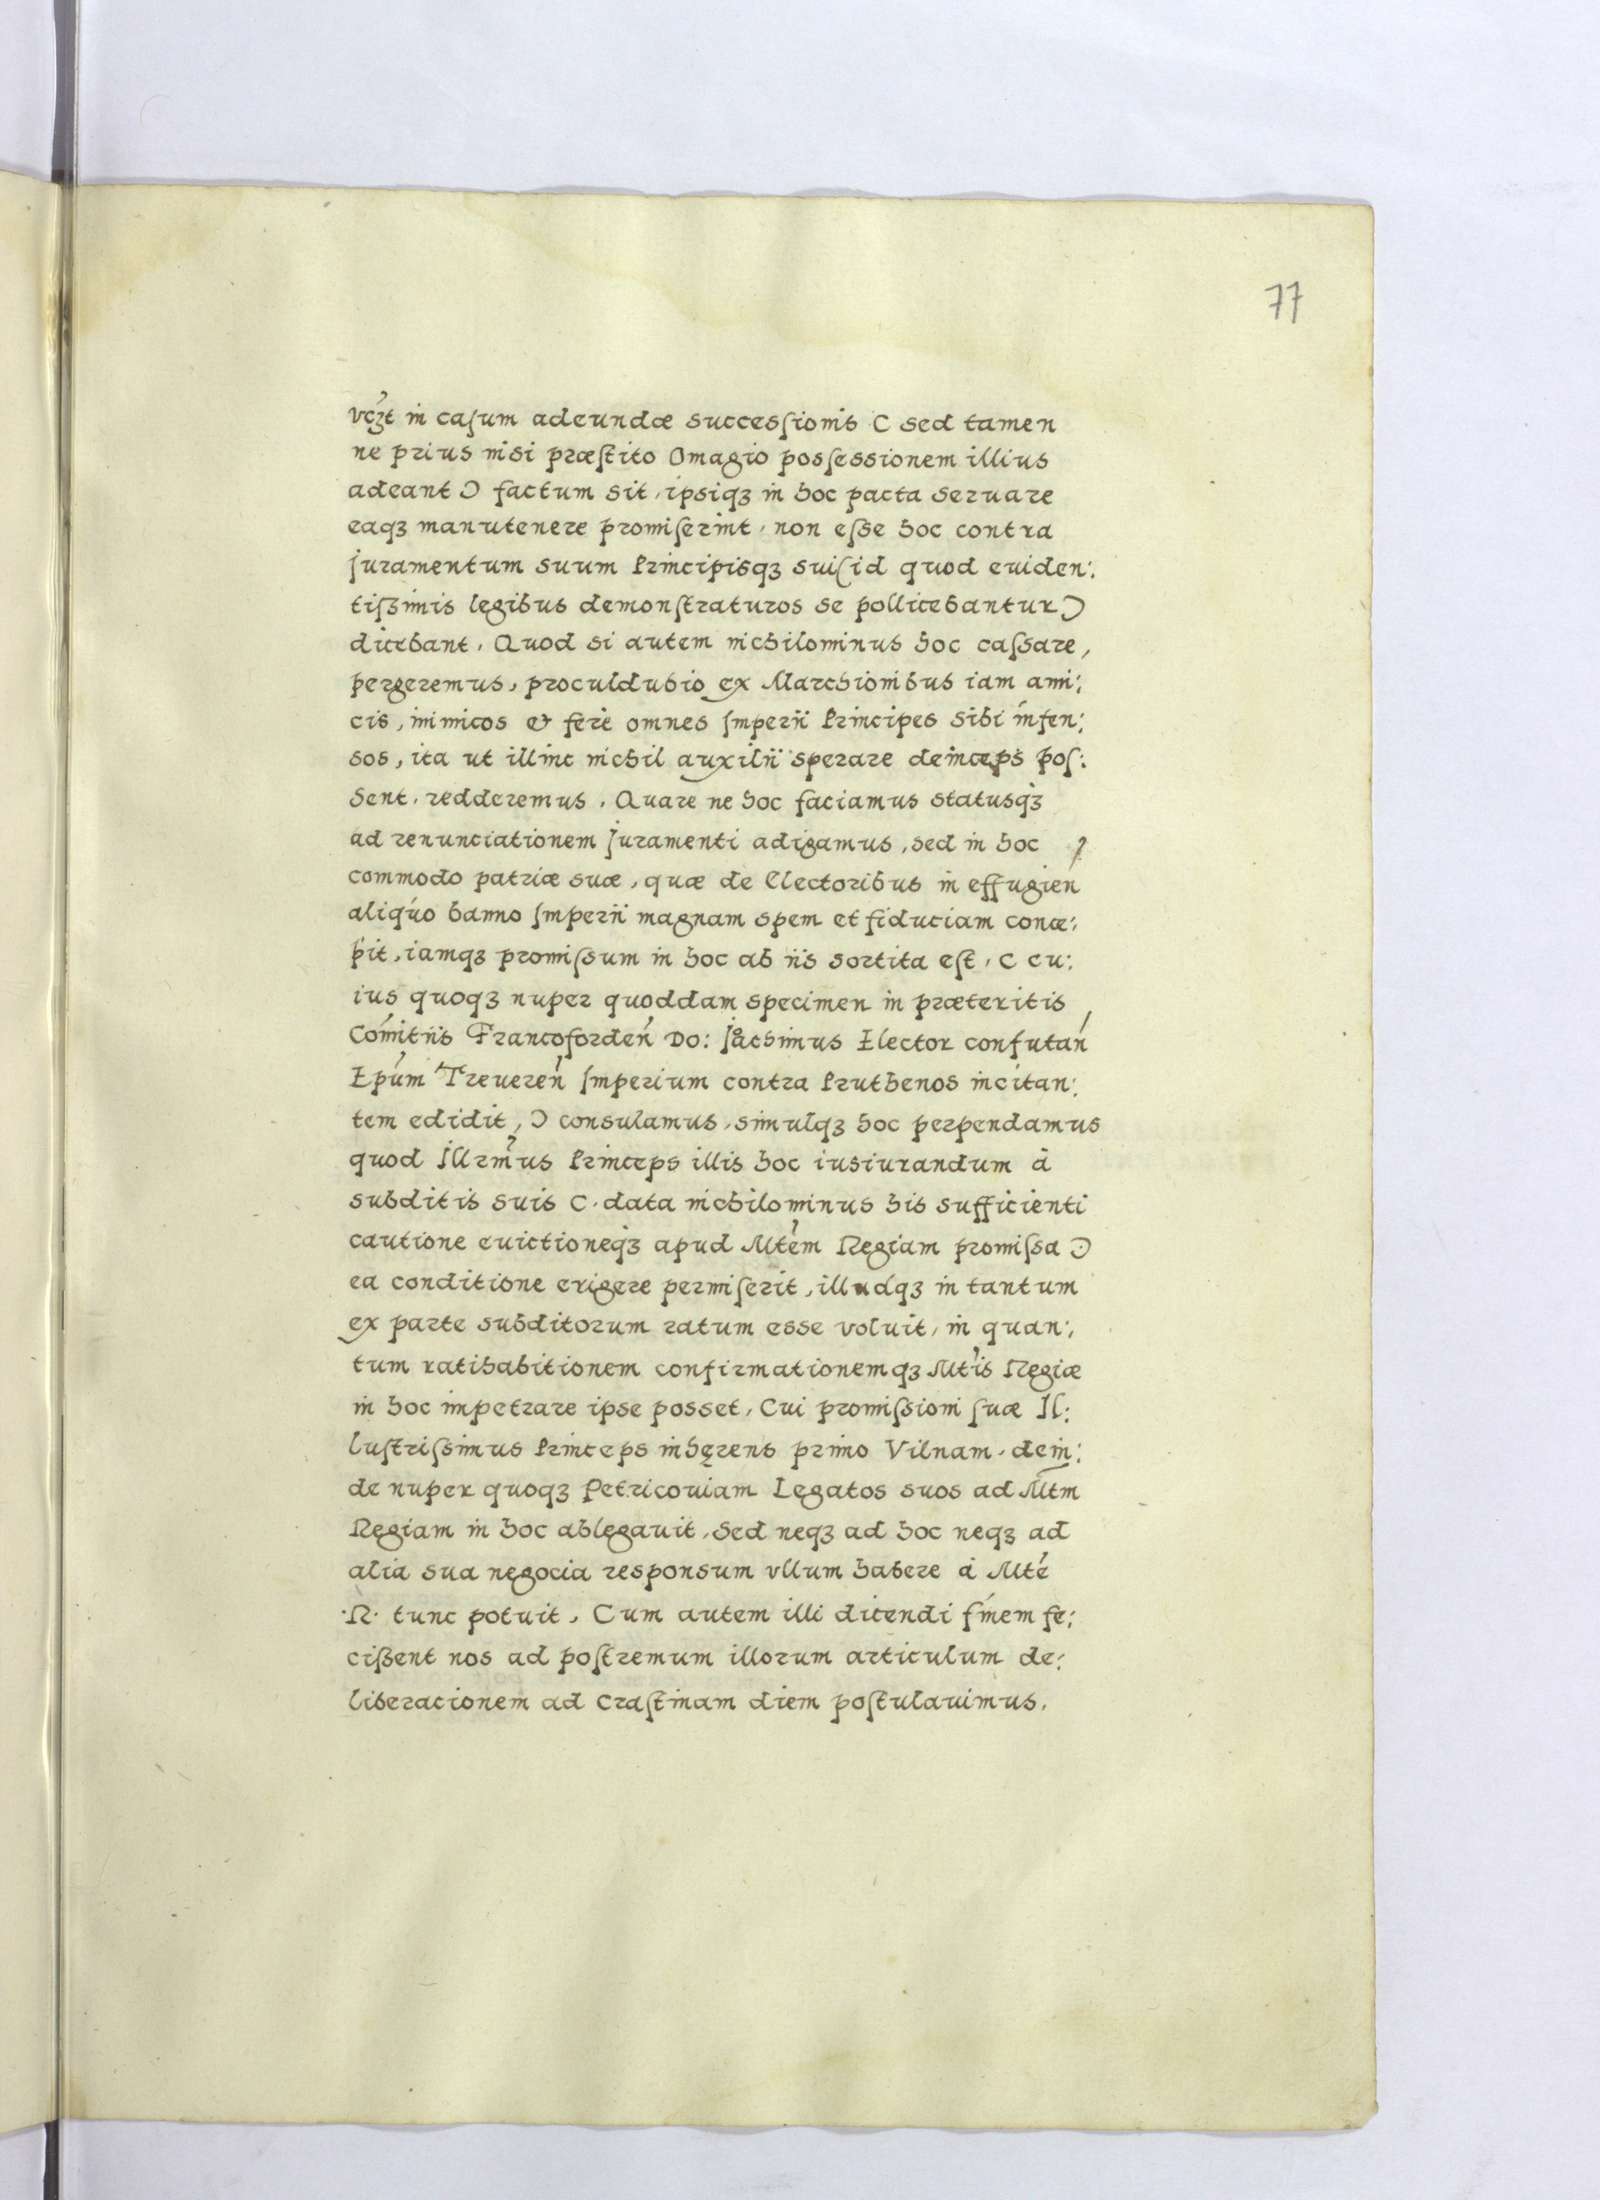 77
vcꝫt in caſum adeundæ successſionis C sed tamen
ne prius nisi præſtito Omagio posſessionem illius
adeant Ɔ factum sit, ipsiqꝫ in hoc pacta seruare
eaqꝫ manutenere promiſerint, non eſse hoc contra
Juramentum suum Principisqꝫ sui (id quod euiden:
tiſsimis legibus demonſtraturos se pollicebantur Ɔ
dicebant. Quod si autem nichilominus hoc caſsare,
pergeremus, proculdubio ex Marchionibus iam ami:
cis, inimicos & fere omnes Imperii Principes sibi infen:
sos, ita ut illinc nichil auxilii sperare deinceps poſ:
sent, redderemus. Quare ne hoc faciamus statusqꝫ
ad renunciationem Juramenti adigamus, sed in hoc
commodo patriæ suæ, quæ de Electoribus in effugien̄
aliquo banno Imperii magnam spem et fiduciam conce:
pit, iamqꝫ promiſsum in hoc ab iis sortita eſt, C cu:
ius quoqꝫ nuper quoddam specimen in præteritis
Comitiis Francoforden̄ Do: Joachimus Elector confutan̄
Epūm Treueren̄ Imperium contra Pruthenos incitan:
tem edidit, Ɔ consulamus, simulqꝫ hoc perpendamus
quod Illrm̄us Princeps illis hoc iusiurandum à
subditis suis C data nichilominus his sufficienti
cautione euictioneqꝫ apud Mtēm Regiam promiſsa Ɔ
ea conditione exigere permiſerit, illudqꝫ in tantum
ex parte subditorum ratum esse voluit, in quan:
tum ratihabitionem confirmationemqꝫ Mtīs Regiæ
in hoc impetrare ipse posset, Cui promiſsioni ſuæ Il:
luſtriſsimus Princeps inhęrens primo Vilnam, dein:
de nuper quoqꝫ Petricouiam Legatos suos ad Mtm̄
Regiam in hoc ablegauit, Sed neqꝫ ad hoc neqꝫ ad
alia sua negocia responsum vllum habere à Mtē
·R· tunc potuit, Cum autem illi dicendi finem fe:
ciſsent nos ad poſtremum illorum articulum de:
liberacionem ad craſtinam diem poſtulauimus.